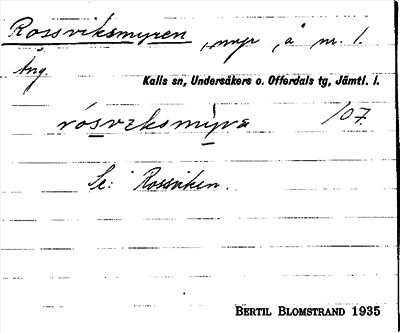 Rossviksmyren, myr, å nr. 1.
Äng.
Kalls sn, Undersåkers o. Offerdals tg, Jämtl. l.
rósviksmỳra 107.
Se: Rossviken.
BERTIL BLOMSTRAND 1935